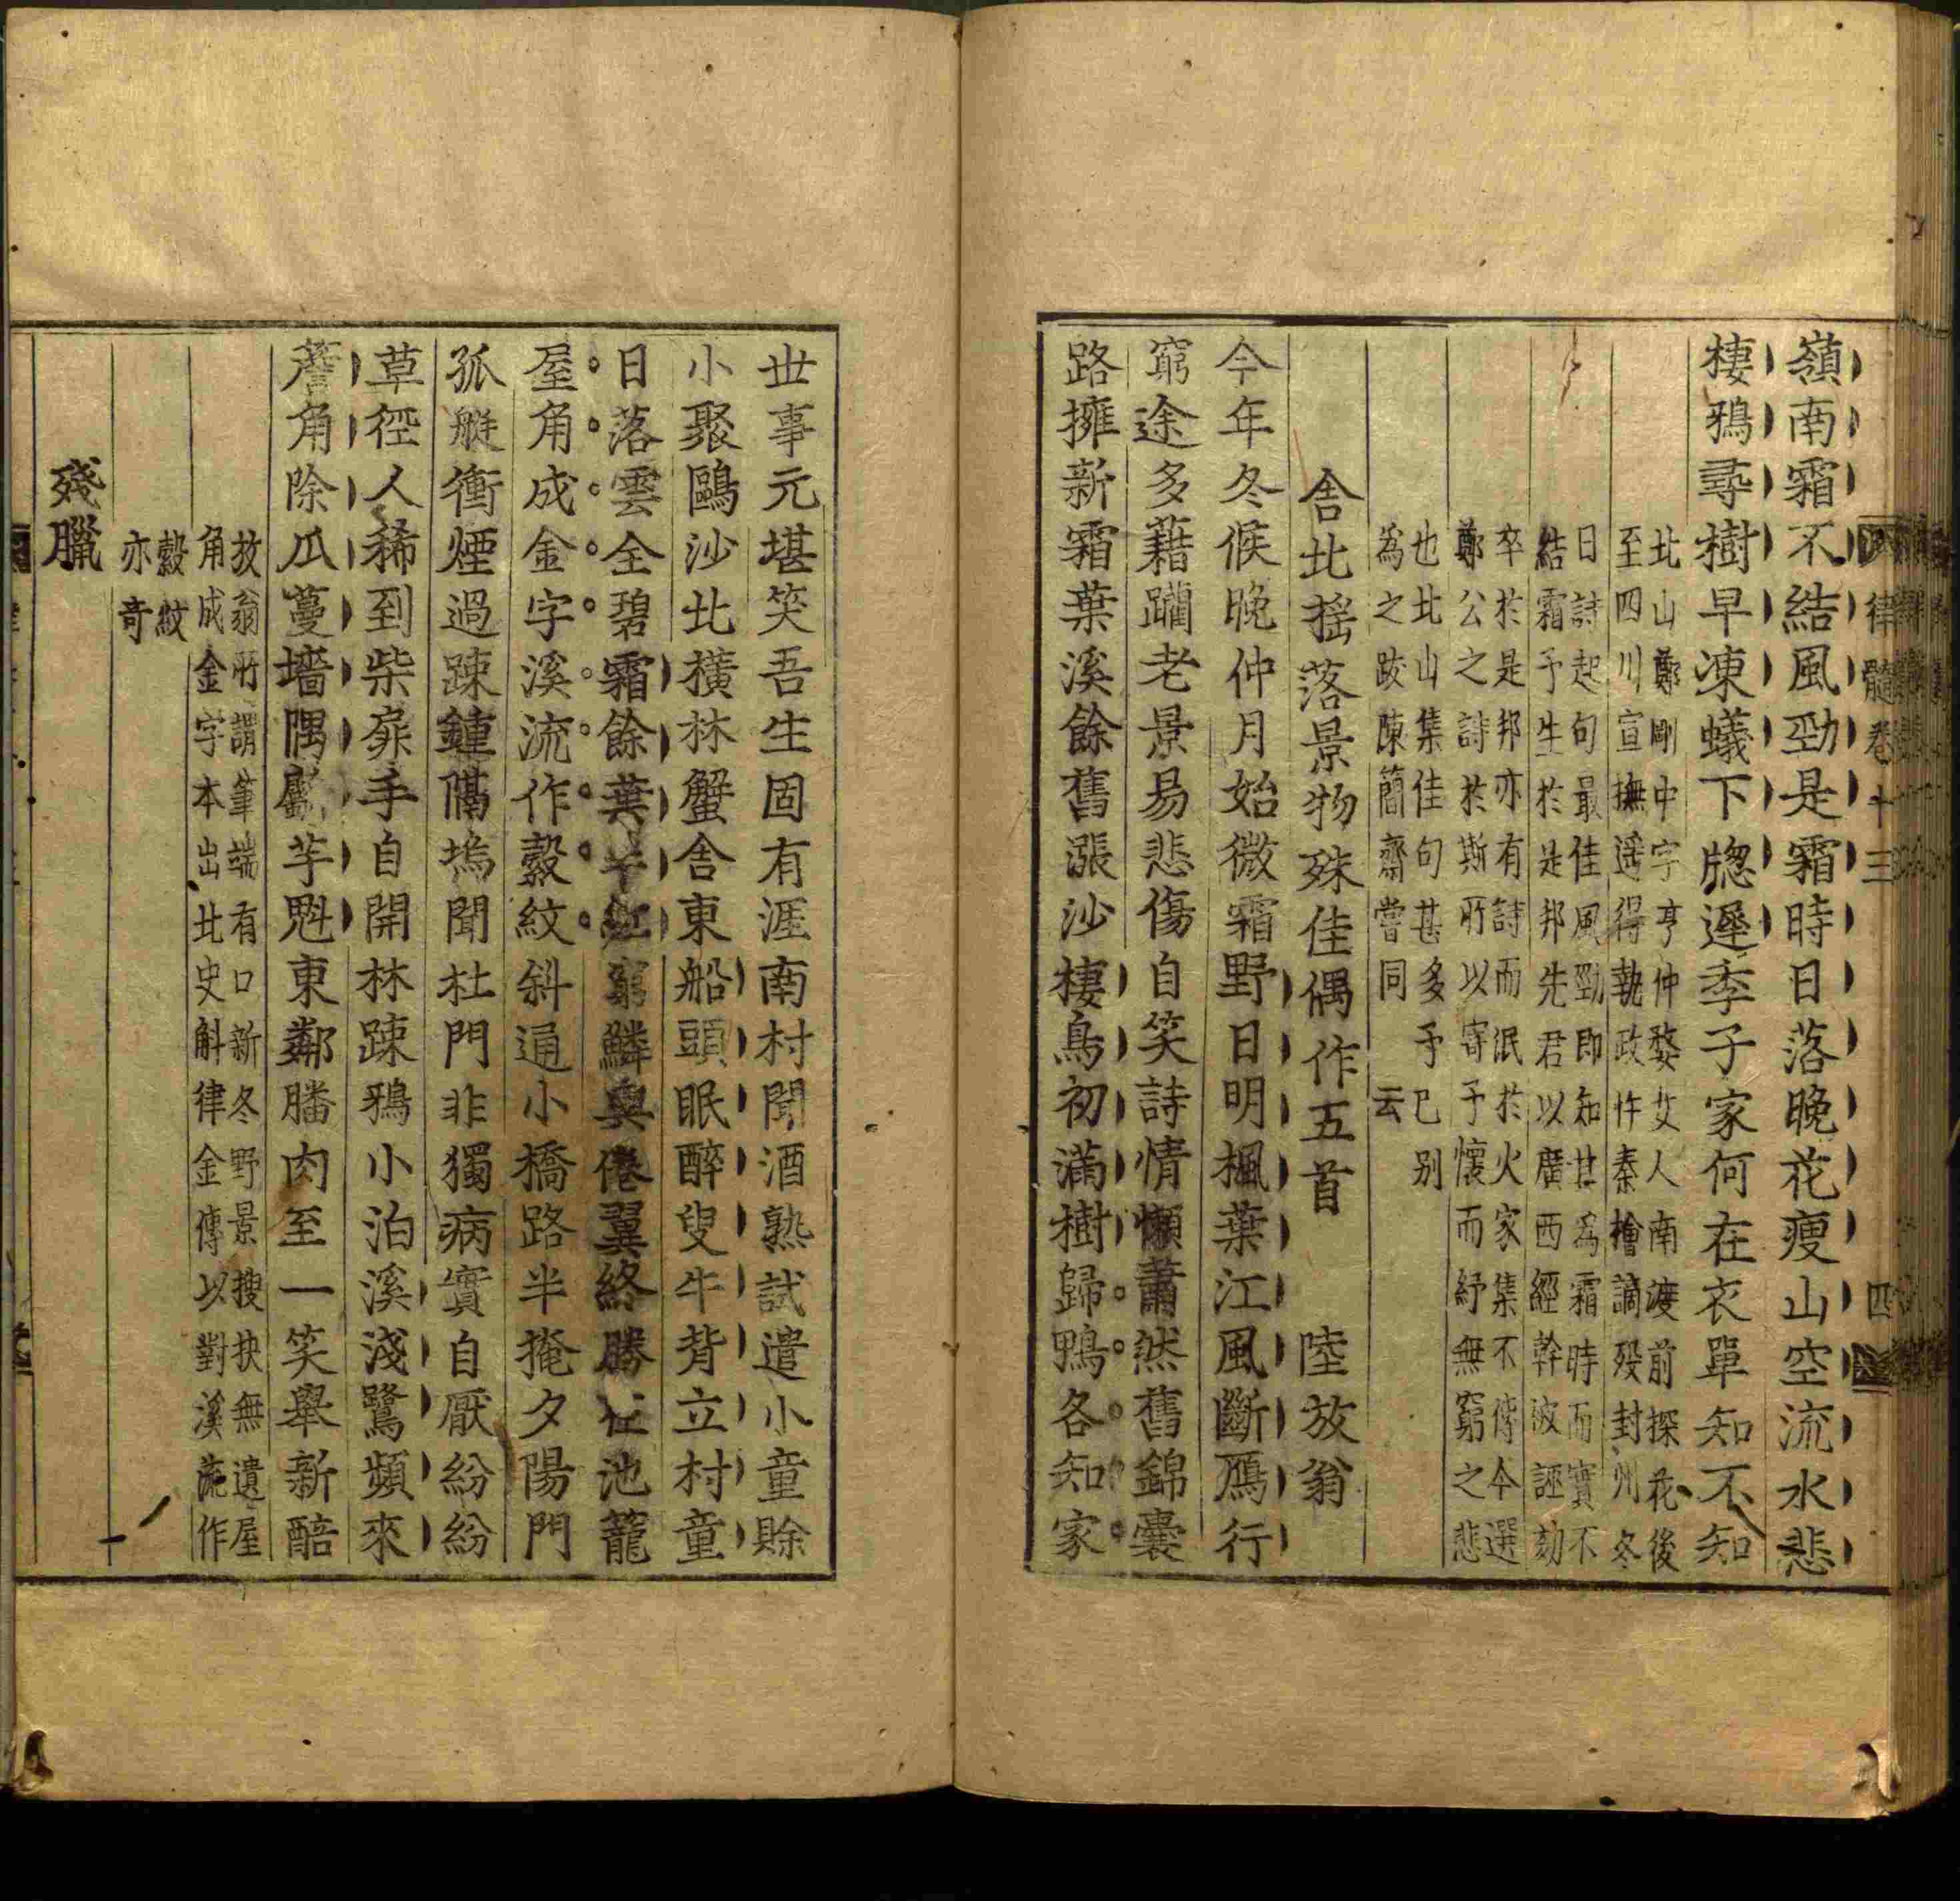 嶺南霜不結風勁是霜時日落晚花瘦山空流水悲
棲鴉尋樹早凍蟻下牎遲季子家何在衣單知不知
北山鄭剛中字亨仲婺女人南渡前探花後
至四川宣撫遥得執政忤秦檜謫殁封州冬
日詩起句最佳風勁即知甚爲霜時而實不
結霜予生於是邦先君以廣西經幹被誣劾
卒於是邦亦有詩而泯於火家集不傳今選
鄭公之詩於斯所以寄予懷而紓無窮之悲
也北山集佳句甚多予已别
為之跋陳簡齋嘗同 云
舍北揺落景物殊佳偶作五首 陸放翁
今年冬候晚仲月始微霜野日明楓葉江風斷鴈行
窮途多藉躪老景易悲傷自笑詩情懶蕭然舊錦囊
路擁新霜葉溪餘舊漲沙棲鳥初滿樹歸鴨各知家
世事元堪笑吾生固有涯南村聞酒熟試遣小童賖
小聚鷗沙北横林蟹舍東船頭眠醉叟牛背立村童
日落雲全碧霜餘葉半紅窮鱗與倦翼終勝在池籠
屋角成金字溪流作縠紋斜通小橋路半掩夕陽門
孤艇衝煙過踈鍾隔塢聞杜門非獨病實自厭紛紛
草徑人稀到柴扉手自開林踈鴉小泊溪淺鷺頻來
薝角除瓜蔓墻隅斸芋魁東鄰膰肉至一笑舉新醅
放翁所謂筆端有口新冬野景搜抉無遺屋
角成金字本出北史斛律金傳以對溪流作
縠紋
亦奇
殘臘
律髓卷十三
四